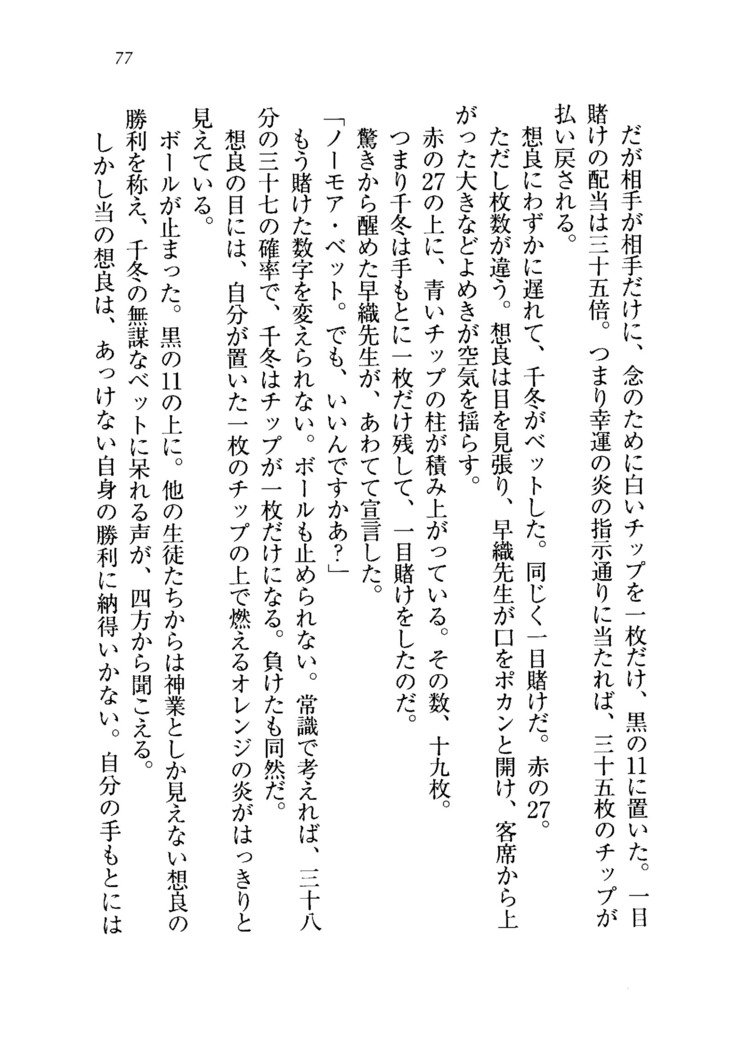 77
　だが相手が相手だけに、念のために白いチップを一枚だけ、黒の11に置いた。一目
賭けの配当は三十五倍。つまり幸運の炎の指示通りに当たれば、三十五枚のチップが
払い戻される。
　想良にわずかに遅れて、千冬がベットした。同じく一目賭けだ。赤の27。
　ただし枚数が違う。想良は目を見張り、早織先生が口をポカンと開け、客席から上
がった大きなどよめきが空気を揺らす。
　赤の27の上に、青いチップの柱が積み上がっている。その数、十九枚。
　つまり千冬は手もとに一枚だけ残して、一目賭けをしたのだ。
　驚きから醒めた早織先生が、あわてて宣言した。
「ノーモア・ベット。でも、いいんですかあ？」
　もう賭けた数字を変えられない。ボールも止められない。常識で考えれば、三十八
分の三十七の確率で、千冬はチップが一枚だけになる。負けたも同然だ。
　想良の目には、自分が置いた一枚のチップの上で燃えるオレンジの炎がはっきりと
見えている。
　ボールが止まった。黒の11の上に。他の生徒たちからは神業としか見えない想良の
勝利を称え、千冬の無謀なベットに呆れる声が、四方から聞こえる。
　しかし当の想良は、あっけない自身の勝利に納得いかない。自分の手もとには